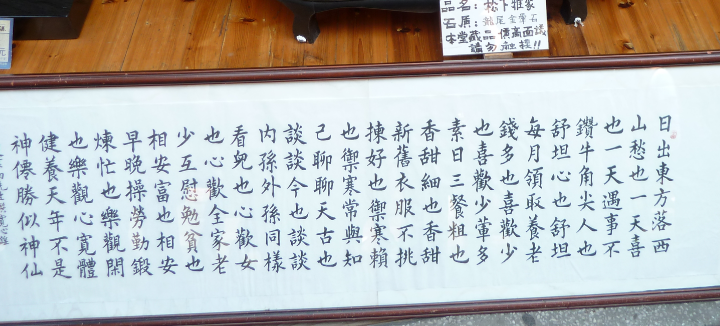 品名：松下雅家
石質：龍尾金暈石
本堂藏品 價高面議
請勿触摸!!
日出東方落西
山愁也一天喜
也一天遇事不
鑽牛角尖人也
舒坦心也舒坦
每月領取養老
錢多也喜歡少
也喜歡少葷多
素日三餐粗也
香甜細也香甜
新舊衣服不挑
揀好也禦寒賴
也禦寒常與知
己聊聊天古也
談談今也談談
內孫外孫同樣
看兒也心歡女
也心歡全家老
少互慰勉貧也
相安富也相安
早晚操勞勤鍛
煉忙也樂觀閑
也樂觀心寬體
健養天年不是
神僊勝似神仙